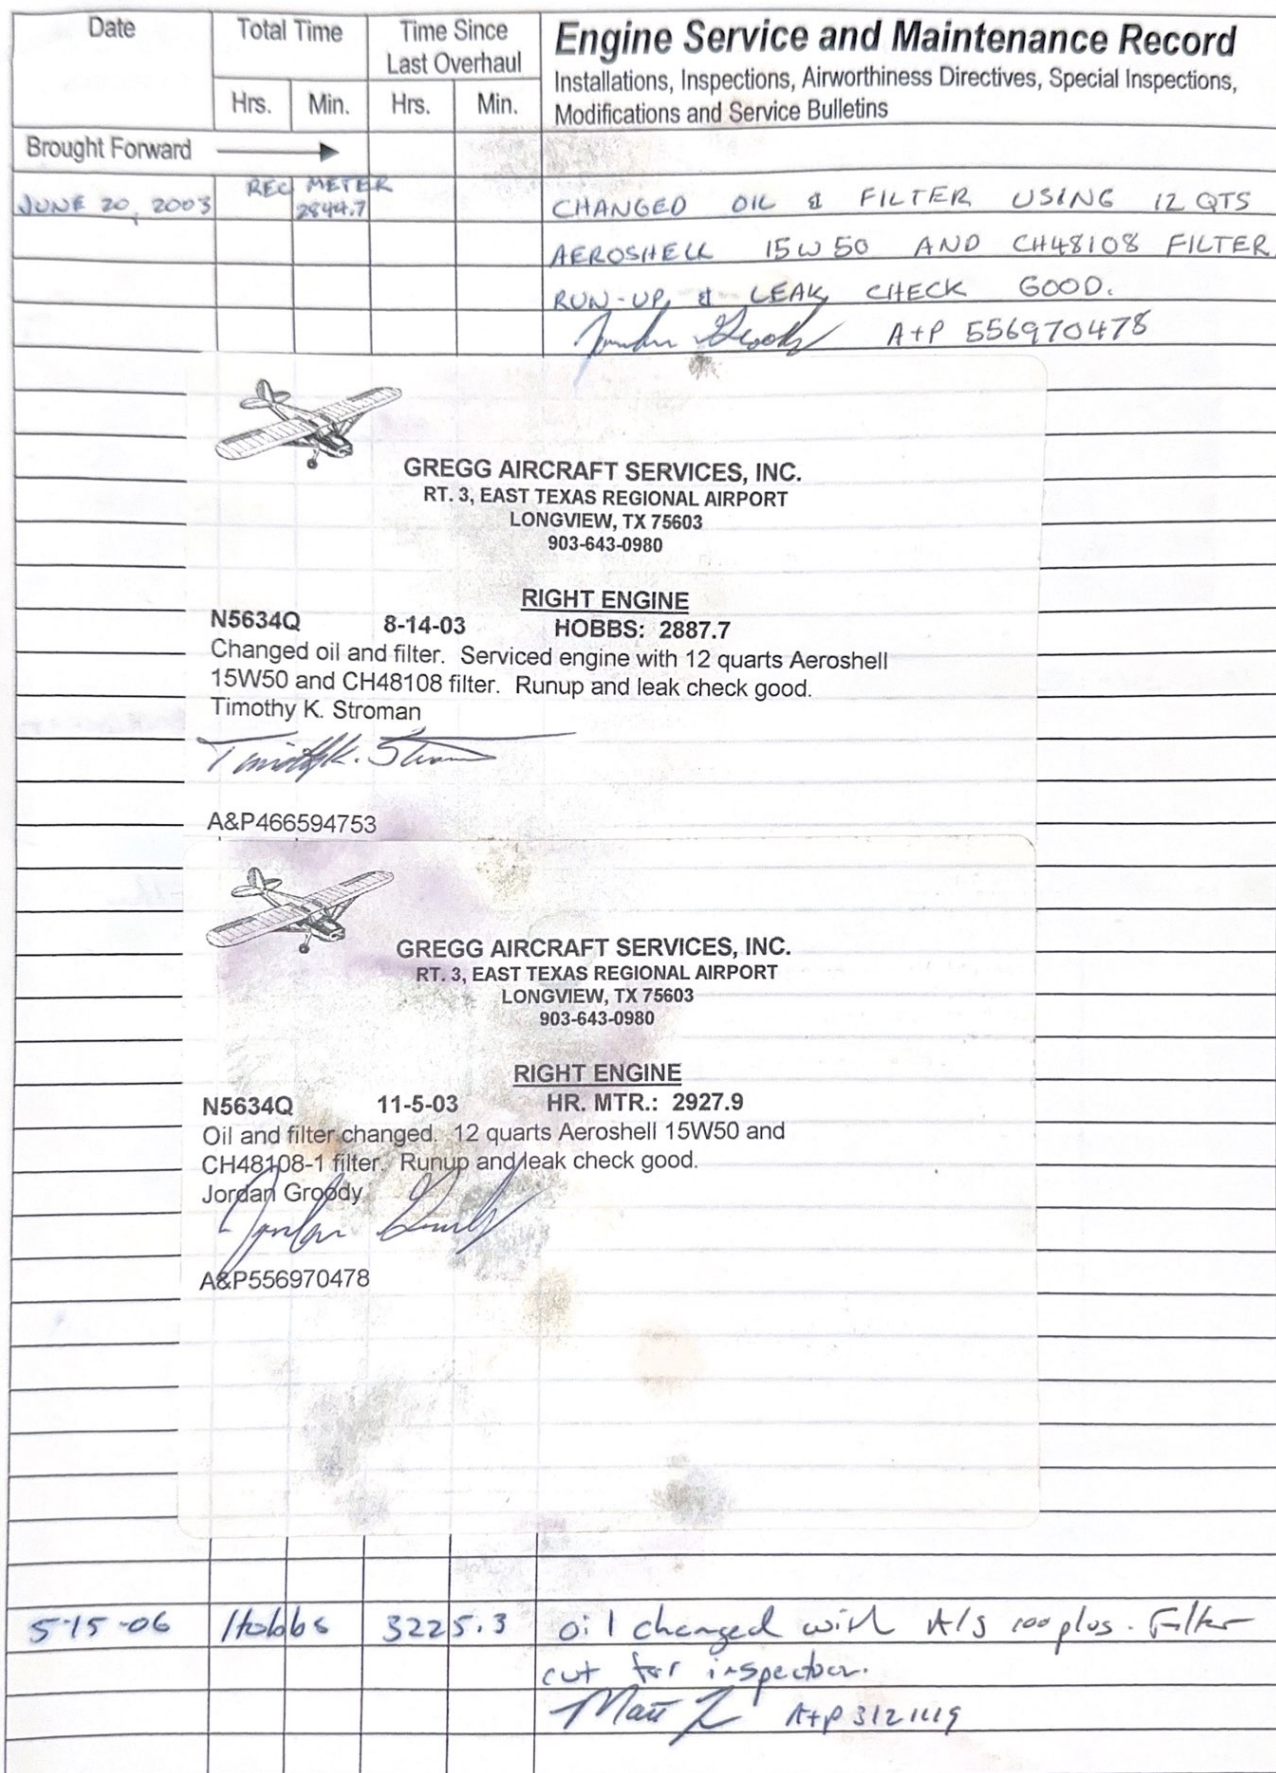 Date
Total Time
Time Since
Last Overhaul
Engine Service and Maintenance Record
Installations, Inspections, Airworthiness Directives, Special Inspections,
Modifications and Service Bulletins
Hrs. Min. Hrs. Min.
Brought Forward
JUNE 20, 2003 REC METER 2844.7 CHANGED OIL & FILTER USING 12 QTS
AEROSHELL 15W50 AND CH48108 FILTER
RUN-UP & LEAK CHECK GOOD.
A+P 556970478
GREGG AIRCRAFT SERVICES, INC.
RT. 3, EAST TEXAS REGIONAL AIRPORT
LONGVIEW, TX 75603
903-643-0980
RIGHT ENGINE
N5634Q 8-14-03 HOBBS: 2887.7
Changed oil and filter. Serviced engine with 12 quarts Aeroshell
15W50 and CH48108 filter. Runup and leak check good.
Timothy K. Stroman
Timothy K. Stroman
A&P466594753
GREGG AIRCRAFT SERVICES, INC.
RT. 3, EAST TEXAS REGIONAL AIRPORT
LONGVIEW, TX 75603
903-643-0980
RIGHT ENGINE
N5634Q 11-5-03 HR. MTR.: 2927.9
Oil and filter changed. 12 quarts Aeroshell 15W50 and
CH48108-1 filter. Runup and leak check good.
Jordan Groody
A&P556970478
5-15-06 Hobbs 3225.3 oil changed with A/S 100 plus. Filter
cut for inspection.
Matt A+P